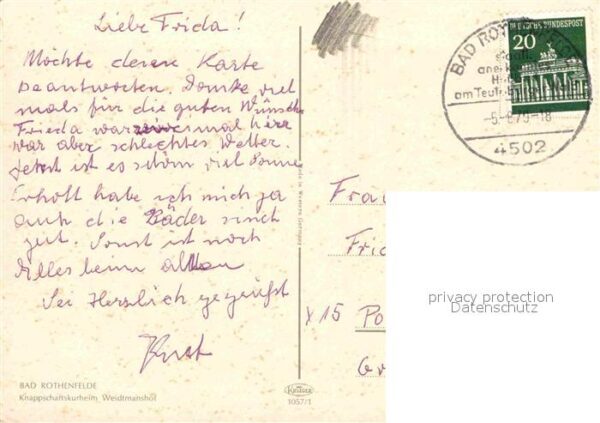 Liebe Frida!
Möchte deine Karte
beantworten. Danke viel
mals für die guten Wünsche
Frieda war einmal hier
war aber schlechtes Wetter.
Jetzt ist es schön viel Sonne
Erholt habe ich mich ja
auch die Bäder sind
gut. Sonst ist noch
Alles beim alten
Sei Herzlich gegrüßt
Kurt
BAD ROTHENFELDE
Knappschaftskurheim Weidtmanshof
Krüger
1057/1
DEUTSCHE BUNDESPOST
20
BAD ROTHE
staatl.
am Teut
-18
4502
Frau
Frie
X 15 Po
Gr
privacy protection
Datenschutz